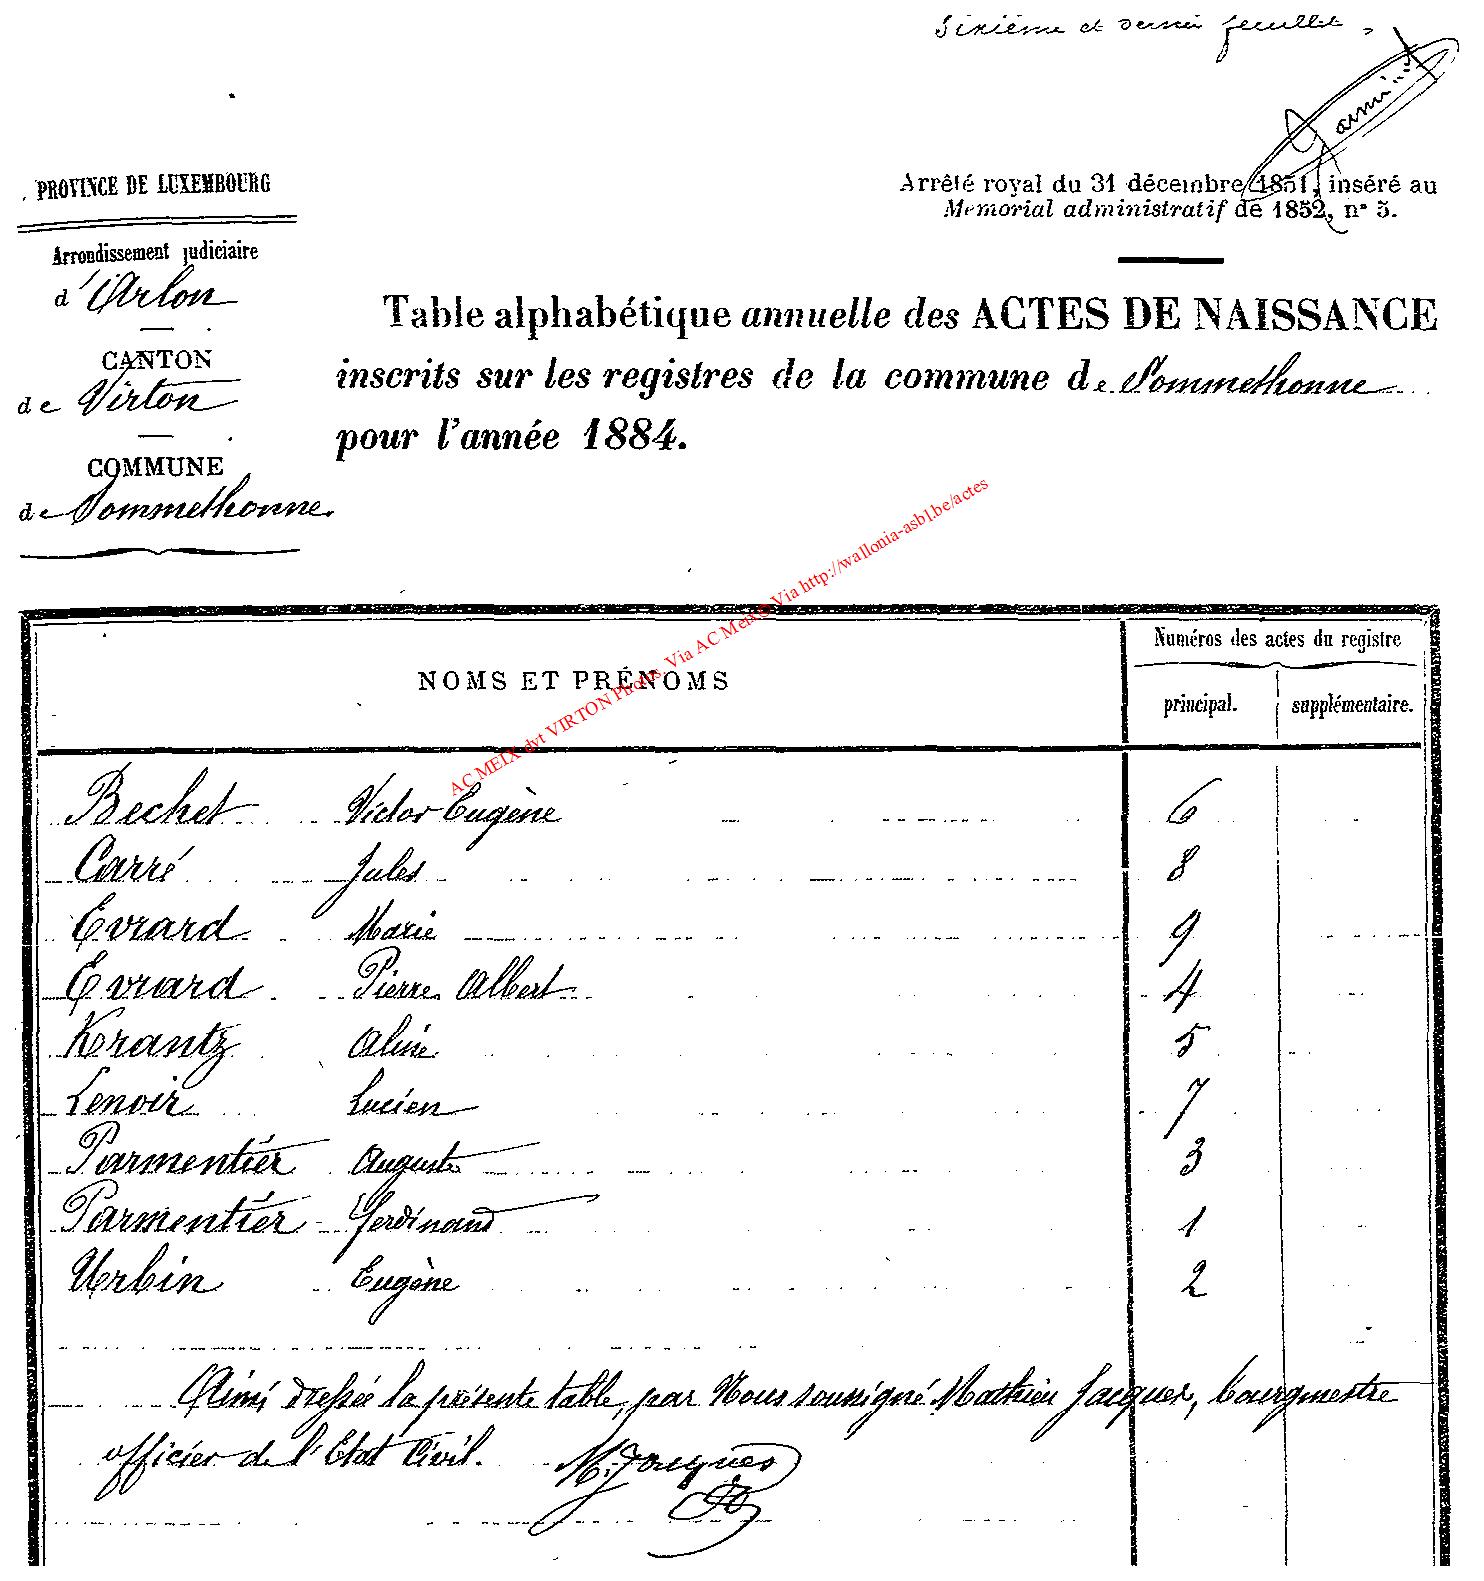 Sixième et dernier feuillet.
PROVINCE DE LUXEMBOURG
Arrêté royal du 31 décembre 1851, inséré au
Memorial administratif de 1852, n° 5.
Arrondissement judiciaire
d'Arlon
CANTON
de Virton
COMMUNE
de Sommethonne.
Table alphabétique annuelle des ACTES DE NAISSANCE
inscrits sur les registres de la commune de Sommethonne
pour l'année 1884.
AC MEIX dvt VIRTON Photos Via AC Meix @ Via http://wallonia-asbl.be/actes
NOMS ET PRÉNOMS
Numéros des actes du registre
principal. supplémentaire.
Bechet Victor Eugène 6
Carré Jules 8
Evrard Marie 9
Evrard Pierre Albert 4
Krantz Aline 5
Lenoir Lucien 7
Parmentier Auguste 3
Parmentier Ferdinand 1
Urbin Eugène 2
Ainsi dressée la présente table, par Nous soussigné Mathieu Jacques, bourgmestre
officier de l'Etat Civil. M. Jacques